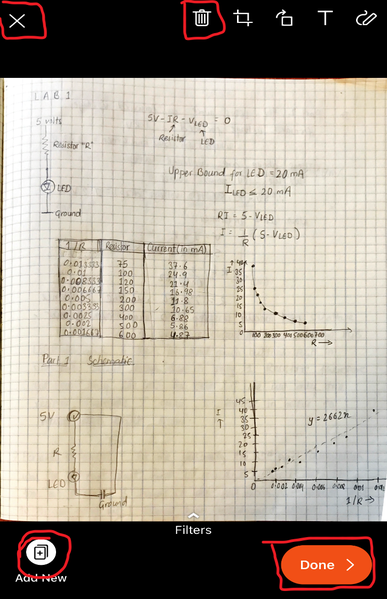 LAB 1
5 volts
5V - IR - VLED = 0
Resistor "R"
Resistor LED
LED
Ground
Upper Bound for LED = 20 mA
ILED ≤ 20 mA
RI = 5 - VLED
I = 1/R (5 - VLED)
1/R Resistor Current (in mA)
0.013333 75 37.6
0.01 100 24.9
0.008333 120 21.4
0.006667 150 16.98
0.005 200 11.8
0.003333 300 10.65
0.0025 400 6.88
0.002 500 5.86
0.001667 600 4.87
I
40
35
30
25
20
15
10
5
0
100 200 300 400 500 600 700
R →
Part 1 Schematic
5V
R
LED
Ground
I
↑
45
40
35
30
25
20
15
10
5
0
y = 2662x
0.002 0.004 0.006 0.008 0.01
1/R →
Filters
Add New
Done